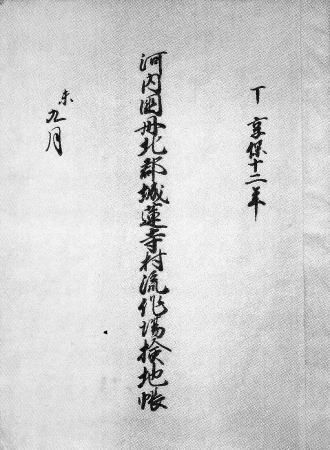 丁 享保十二年
河内國丹北郡城蓮寺村流作場検地帳
未 九月